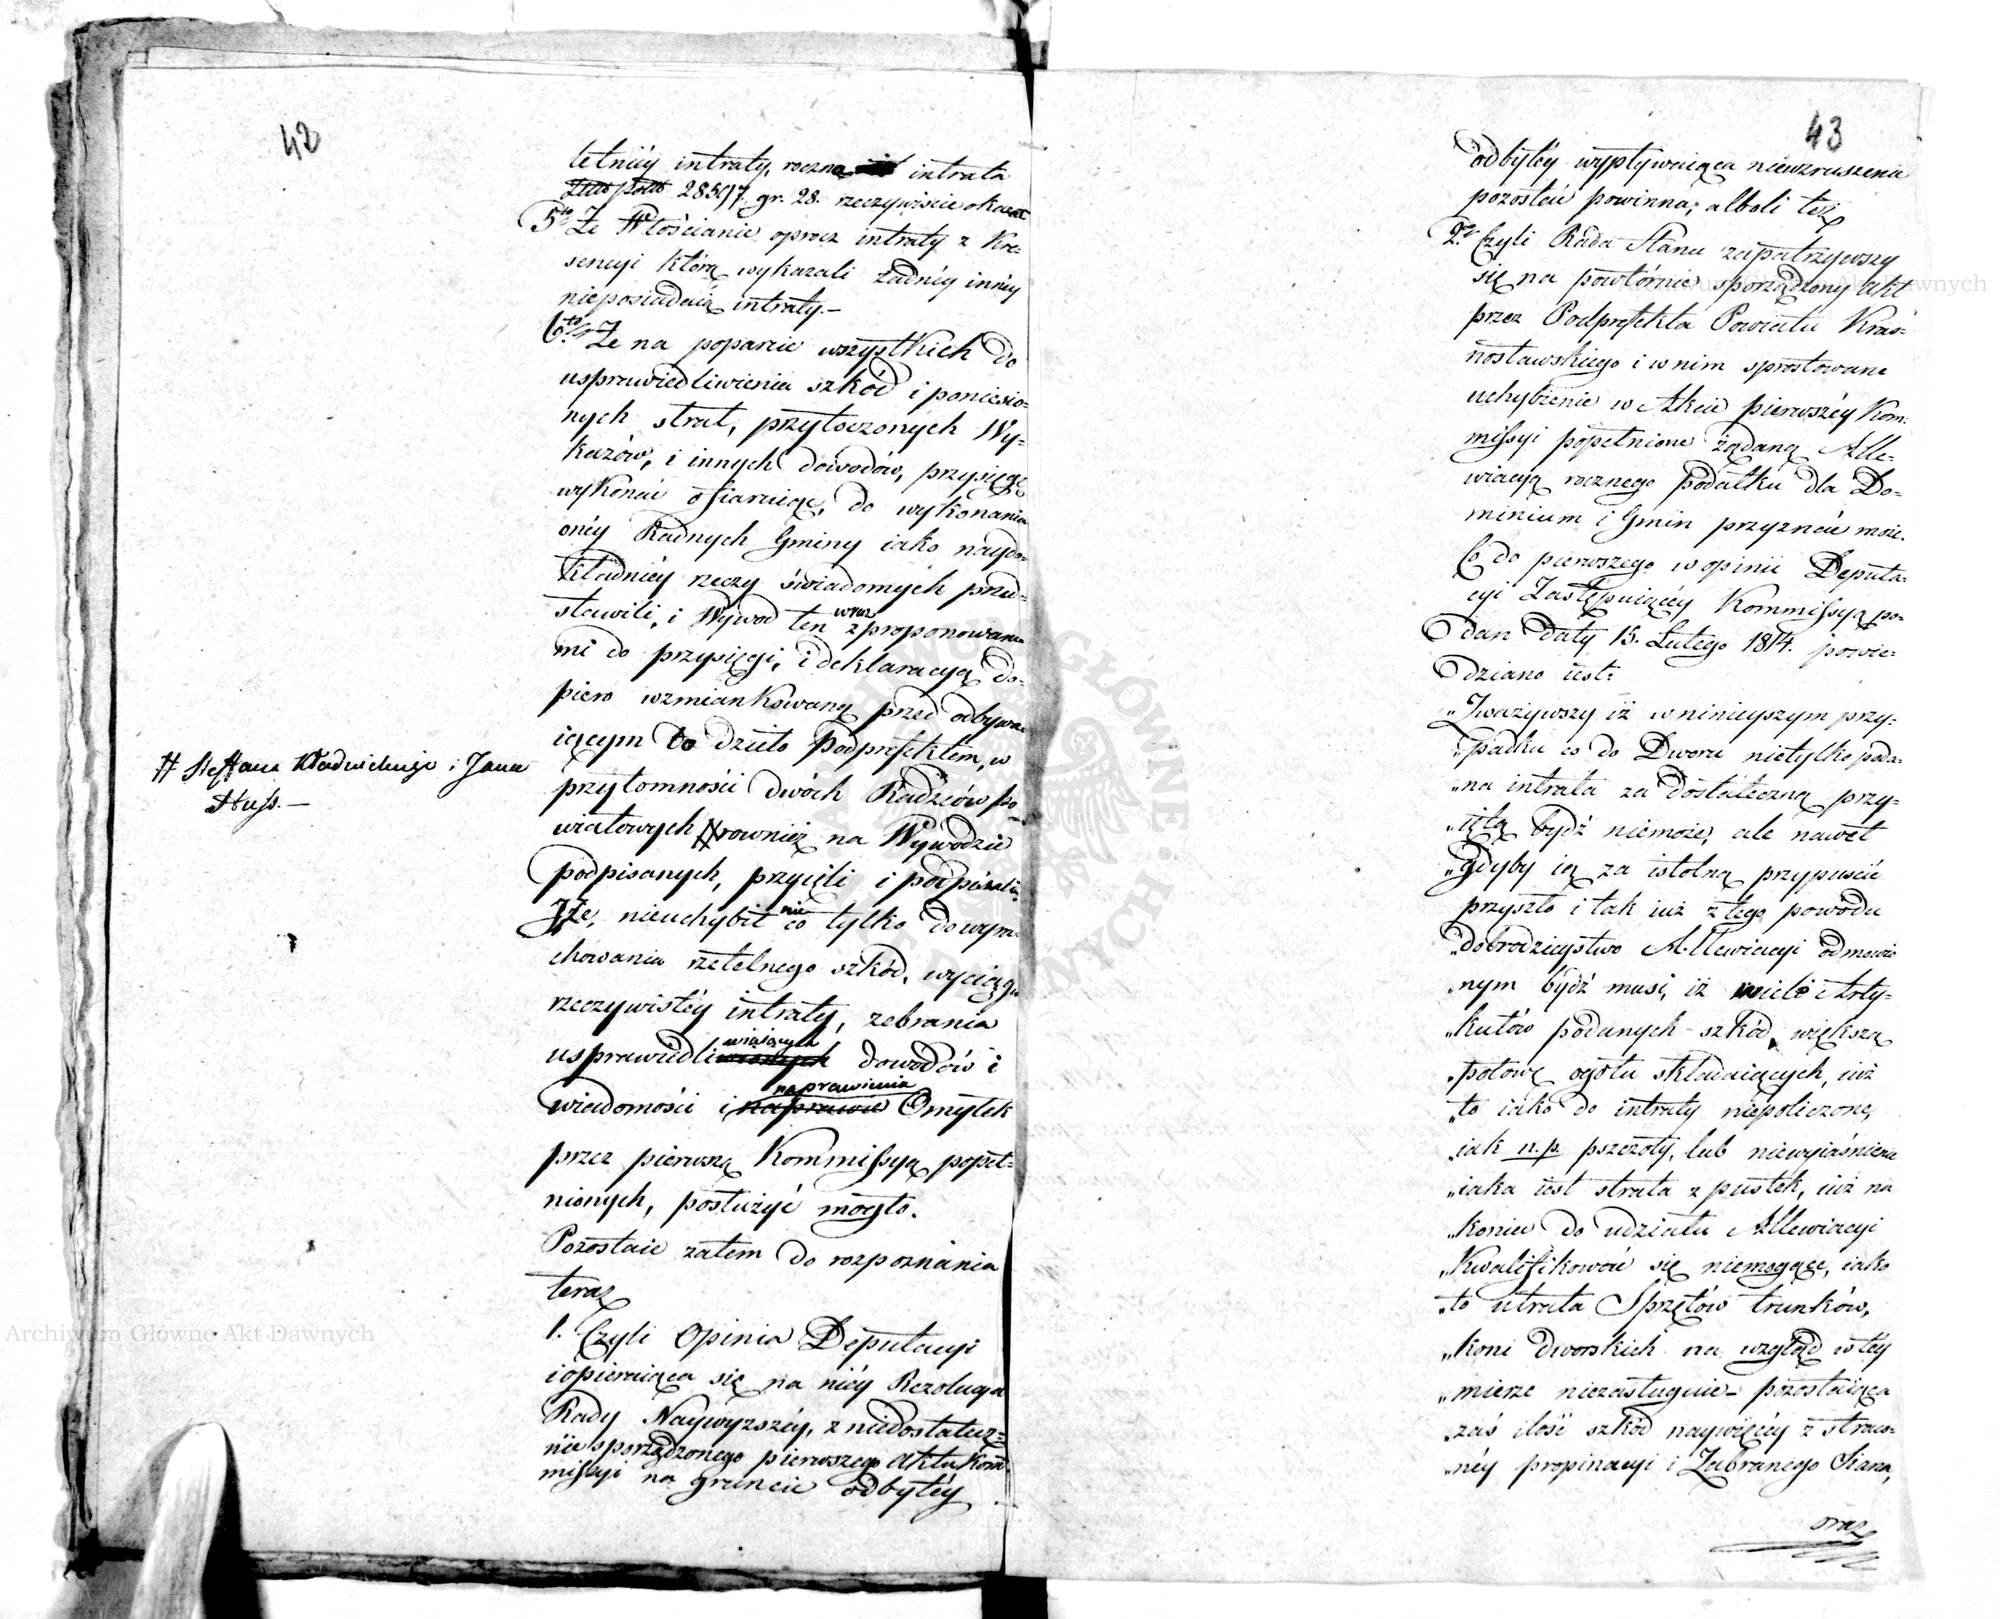 42
letniéy intraty, roczna intrata
28507. gr. 28. rzeczywiście okazał
5to Że Włościanie oprocz intraty z Kre-
sencyi którą wykazali żadnéy innéy
nieposiadaią intraty.-
6to Że na poparcie wszystkich do
usprawiedliwienia szkód i poniesio-
nych strat, przytoczonych Wy-
kazów, i innych dowodów, przysięgę
wykonać ofiaruiąc, do wykonania
onéy Radnych Gminy iako naydo-
kładniéy rzeczy świadomych przed-
stawili, i Wywod ten wraz z proponowane-
mi do przysięgi, i deklaracyą do-
piero wzmiankowaną przed odbywa-
iącym to dzieło Podprefektem, w
przytomności dwóch Radzców Po-
wiatowych # rownież na Wywodzie
# Steffana Kładwickiego i Jana
Huss.-
podpisanych, przyięli i podpisali.
7. Że, nieuchybił nic co tylko do wyra-
chowania rzetelnego szkód, wyciągu
rzeczywistéy intraty, zebrania
usprawiedliwiaiących dowodów i
wiadomości i naprawienia Omyłek
przez pierwszą Kommissyą popeł-
nionych, posłużyć mogło.
Pozostaie zatem do rozpoznania
teraz
1. Czyli Opinia Deputacyi
i opieraiąca się na niéy Rezolucya
Rady Naywyzszéy, z niedostatecz-
nie sporządzonego pierwszego Aktu Kom-
missyi na gruncie odbytéy
43
odbytéy wypływaiąca niewzruszenie
pozostać powinna; alboli też
2. Czyli Rada Stanu zapatrzywszy
się na powtórnie sporządzony Akt
przez Podprefekta Powiatu Kras-
nostawskiego i w nim sprostowane
uchybienie w Akcie pierwszéy Kom-
missyi popełnione żądaną Alle-
wiacyą rocznego podatku dla Do-
minium i Gmin przyznać może.
Co do pierwszego w opinii Deputa-
cyi Zastępuiącéy Kommissyą po-
dan daty 15. Lutego 1814. powie-
dziano iest:
„Zważywszy iż w ninieyszym przy-
„padku co do Dworu nietylko poda-
„na intrata za dostateczną przy-
„iętą bydź niemoże, ale nawet
„gdyby ią za istotną przypuścić
przyszło i tak iuż z tego powodu
„dobrodzieystwo Allewiacyi odmowio-
„nym bydź musi, iż wiele Arty-
„kułów podanych szkód, większą
„połowę ogółu składaiących, iuż
„to iako do intraty niepoliczone,
„iak n.p. pszczoły, lub niewyiaśnione
„iaka iest strata z pustek, iuż na
„koniec do udziału Allewiacyi
„Kwalifikować się niemogące, iako
„to utrata Sprzętów trunków,
„koni dworskich na wzgląd w téy
„mierze niezasługuie- pozostaiąca
„zaś ilość szkód naywięcéy z straco-
„néy propinacyi i Zabranego Siana,
oraz